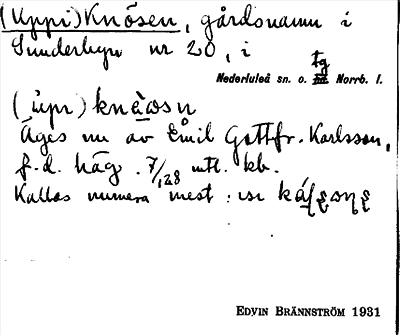 (Uppi) Knösen, gårdsnamn i
Sunderbyn nr 20, i
tg
Nederluleå sn. o. Norrb. l.
(ụpı)
Äges nu av Emil Gottfr. Karlsson,
f.d. häg. 7/128 mtl. kb.
Kallas numera mest :
EDVIN BRÄNNSTRÖM 1931